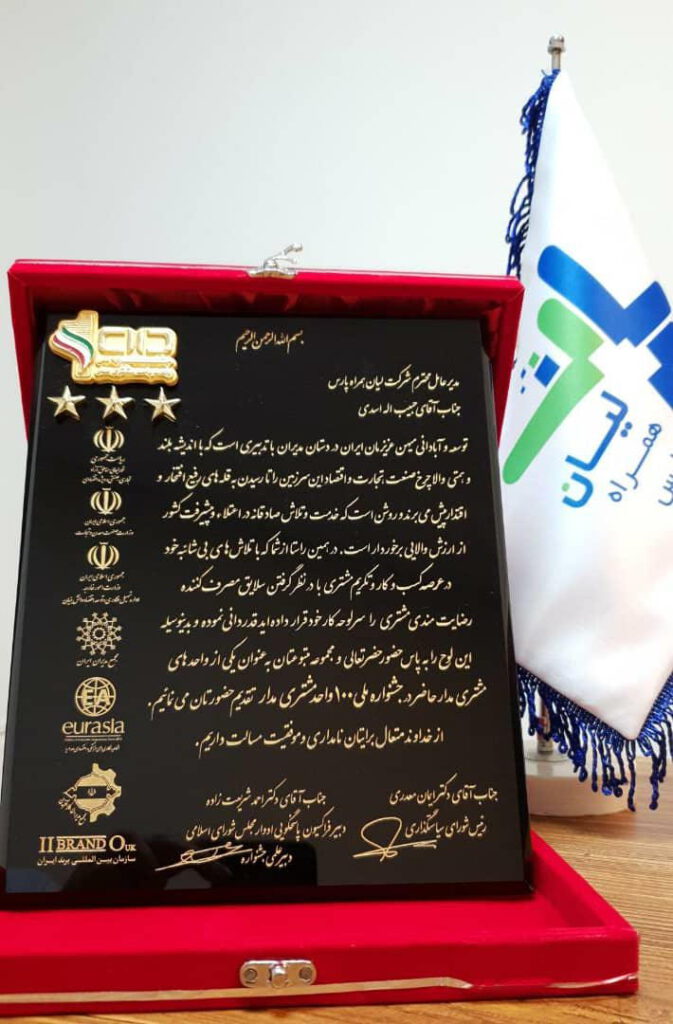 بسم الله الرحمن الرحیم
مدیر عامل محترم شرکت لیان همراه پارس
جناب آقای حبیب اله اسدی
توسعه و آبادانی میهن عزیزمان ایران در دستان مدیران با تدبیری است که با اندیشه بلند
و همتی والا چرخ صنعت، تجارت و اقتصاد این سرزمین را تا رسیدن به قله های رفیع افتخار و
اقتدار پیش می برند و روشن است که خدمت و تلاش صادقانه در اعتلاء و پیشرفت کشور
از ارزش والایی برخوردار است. در همین راستا از شما که با تلاش های بی شائبه خود
در عرصه کسب و کار و تکریم مشتری با در نظر گرفتن سلایق مصرف کننده
رضایت مندی مشتری را سرلوحه کار خود قرار داده اید قدردانی نموده و بدینوسیله
این لوح را به پاس حضور حضرتعالی و مجموعه متبوعتان به عنوان یکی از واحد های
مشتری مدار حاضر در جشنواره ملی ۱۰۰ واحد مشتری مدار تقدیم حضورتان می نمائیم.
از خداوند متعال برایتان نامداری و موفقیت مسالت داریم.
جناب آقای دکتر ایمان معدری
رئیس شورای سیاستگذاری
جناب آقای دکتر احمد شریعت زاده
دبیر فراکسیون پاسخگویی ادوار مجلس شورای اسلامی
دبیر علمی جشنواره
جمهوری اسلامی ایران
وزارت صنعت، معدن و تجارت
جمهوری اسلامی ایران
وزارت امور خارجه
مجمع مدیران ایران
EA
eurasia
II BRAND O UK
سازمان بین المللی برند ایران
لیان
همراه